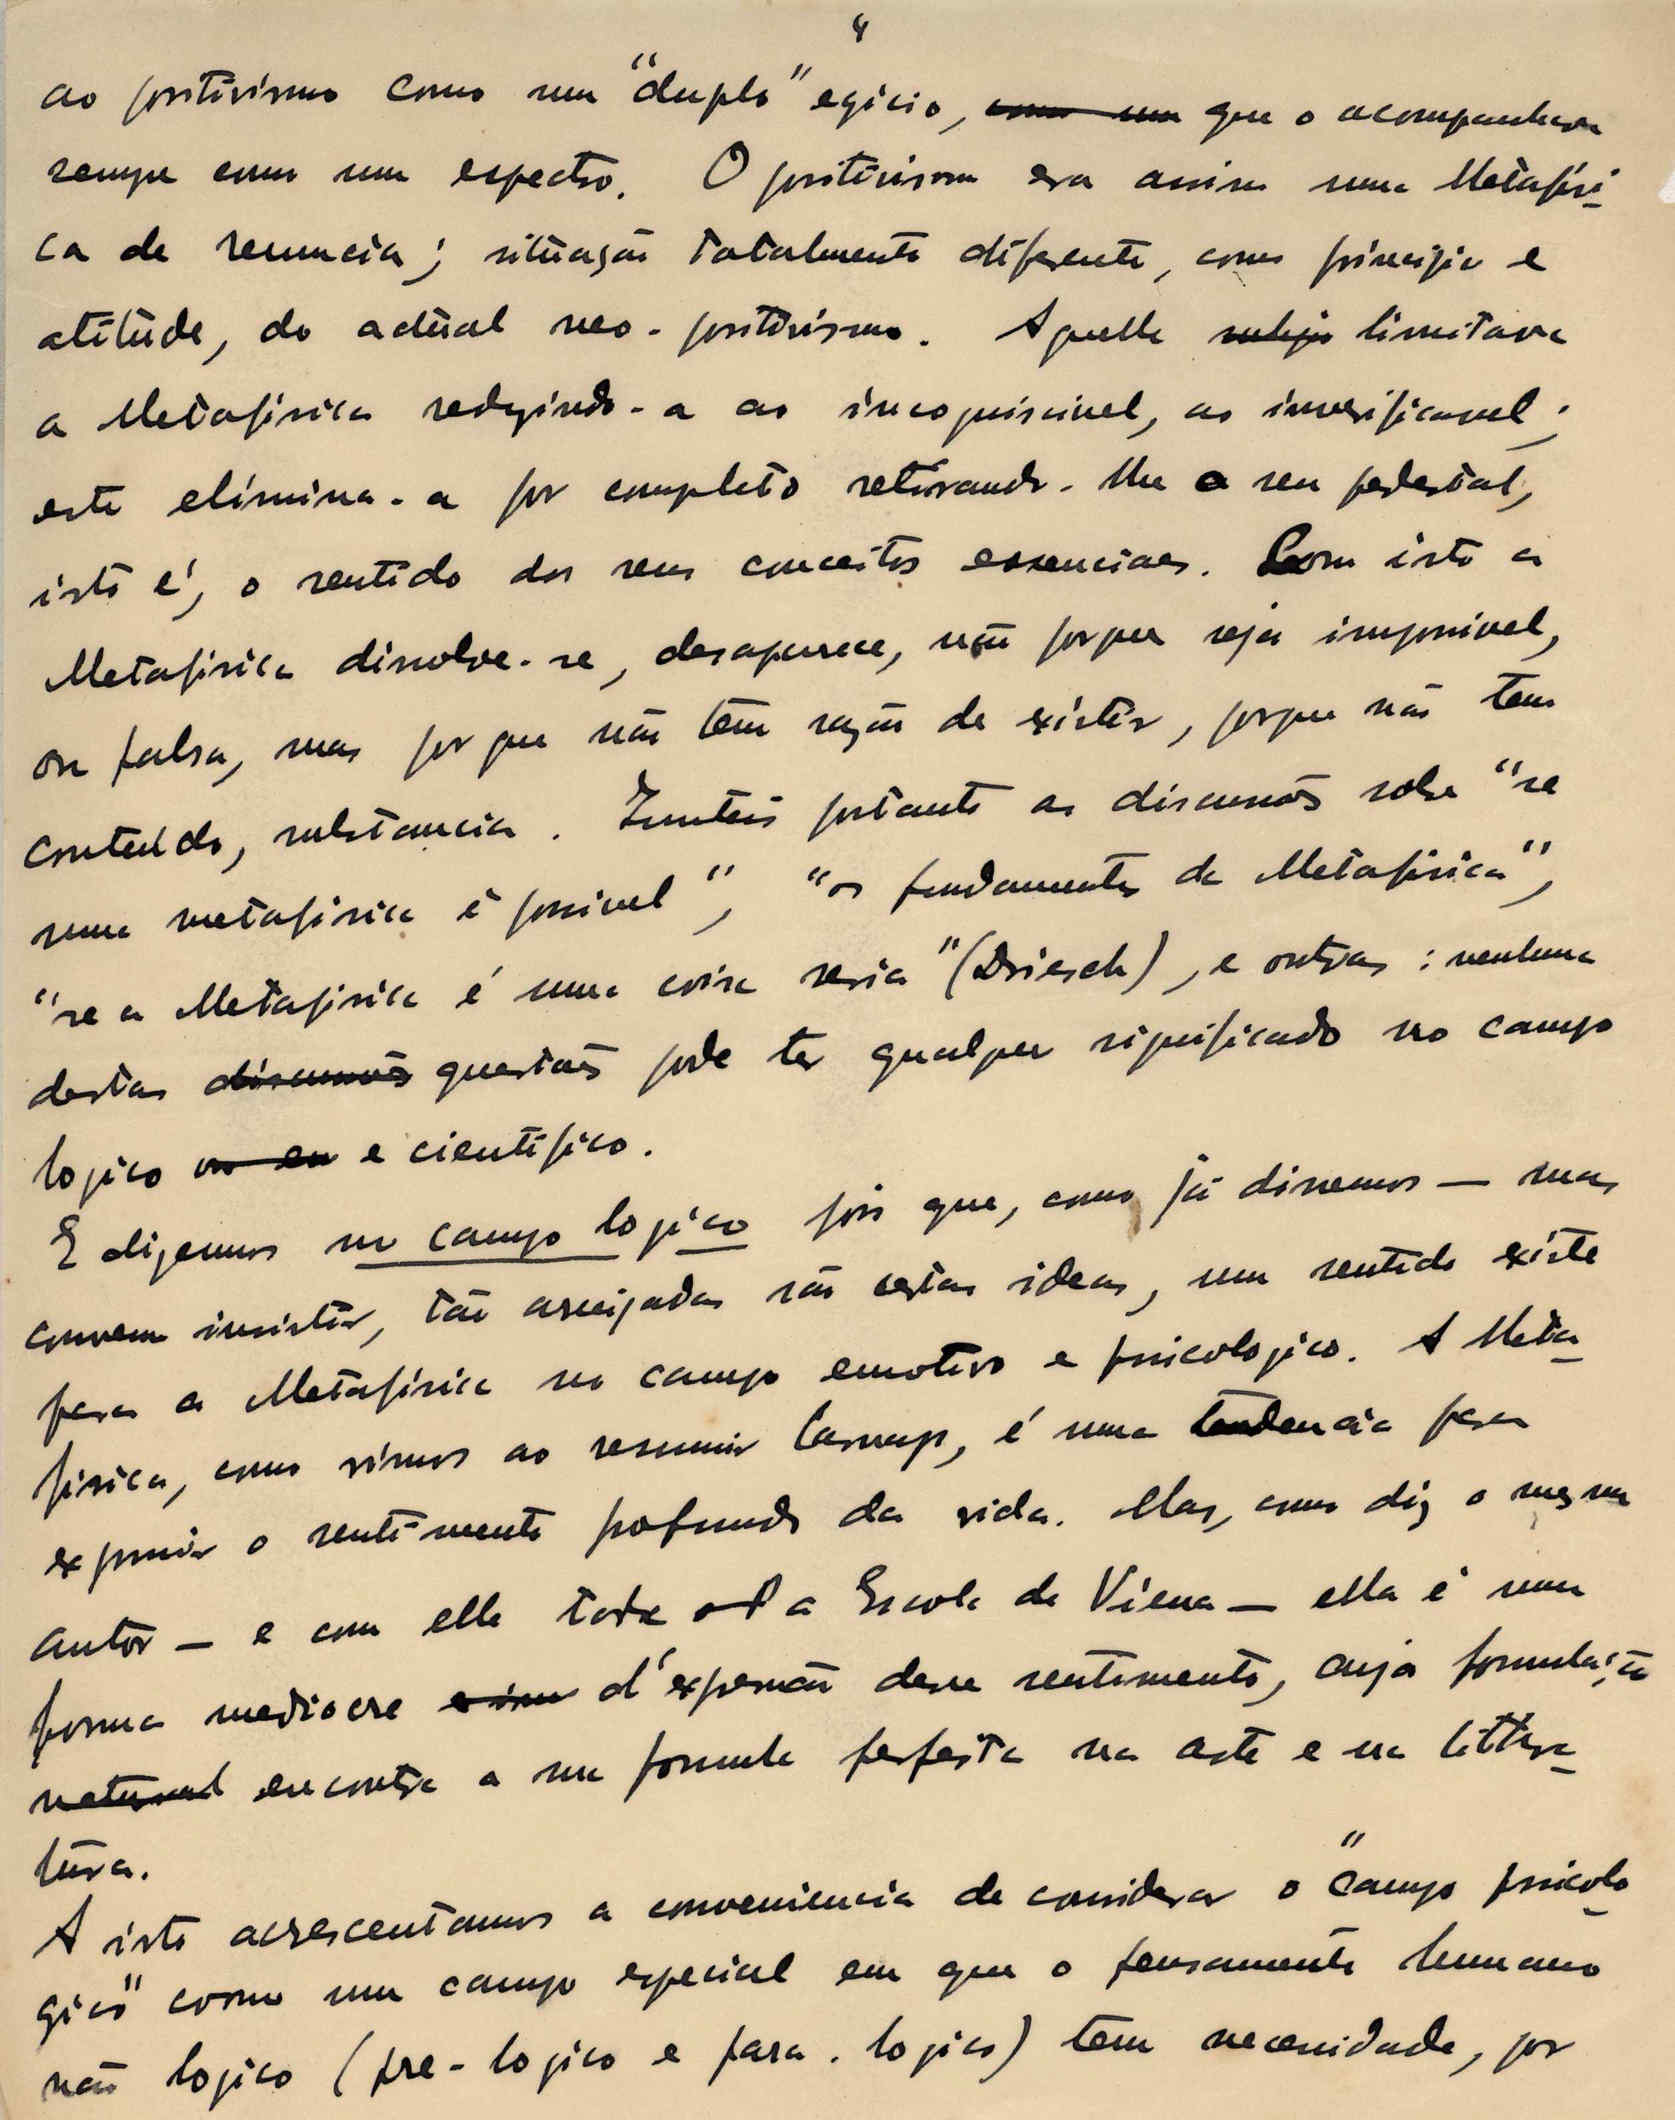 4
ao positivismo como um "duplo" egicio, como um que o acompanhava
sempre como um espectro. O positivismo era assim uma Metafisi-
ca de renuncia; situação totalmente diferente, como principio e
atitude, do actual neo-positivismo. Aquelle limitava
a Metafisica redusindo-a ao incogniscivel, ao inverificavel;
este elimina-a por completo retirando-lhe o seu pedestal,
isto é, o sentido dos seus conceitos essenciaes. Com isto a
Metafisica dissolve-se, desaparece, não porque seja impossivel,
ou falsa, mas por que não tem razão de existir, porque não tem
conteúdo, substancia. Inuteis portanto as discussões sobre "se
uma metafisica é possivel", "os fundamentos da Metafisica",
"se a Metafisica é uma coisa seria" (Driesch), e outras: nenhuma
destas discussões questões pode ter qualquer significado no campo
logico ou em e cientifico.
E dizemos no campo logico pois que, como já dissemos — mas
convem insistir, tão arreigadas são certas ideas, um sentido existe
para a Metafisica no campo emotivo e psicologico. A Meta-
fisica, como vimos ao resumir Carnap, é uma tendencia para
exprimir o sentimento profundo da vida. Mas, como diz o mesmo
autor — e com elle toda a Escola de Viena — ella é uma
forma mediocre d'expressão desse sentimento, cuja formulação
natural encontra a sua formula perfeita na arte e na littera-
tura.
A isto acrescentamos a conveniencia de considerar o "campo psicolo-
gico" como um campo especial em que o pensamento humano
não logico (pre-logico e para-logico) tem necessidade, por